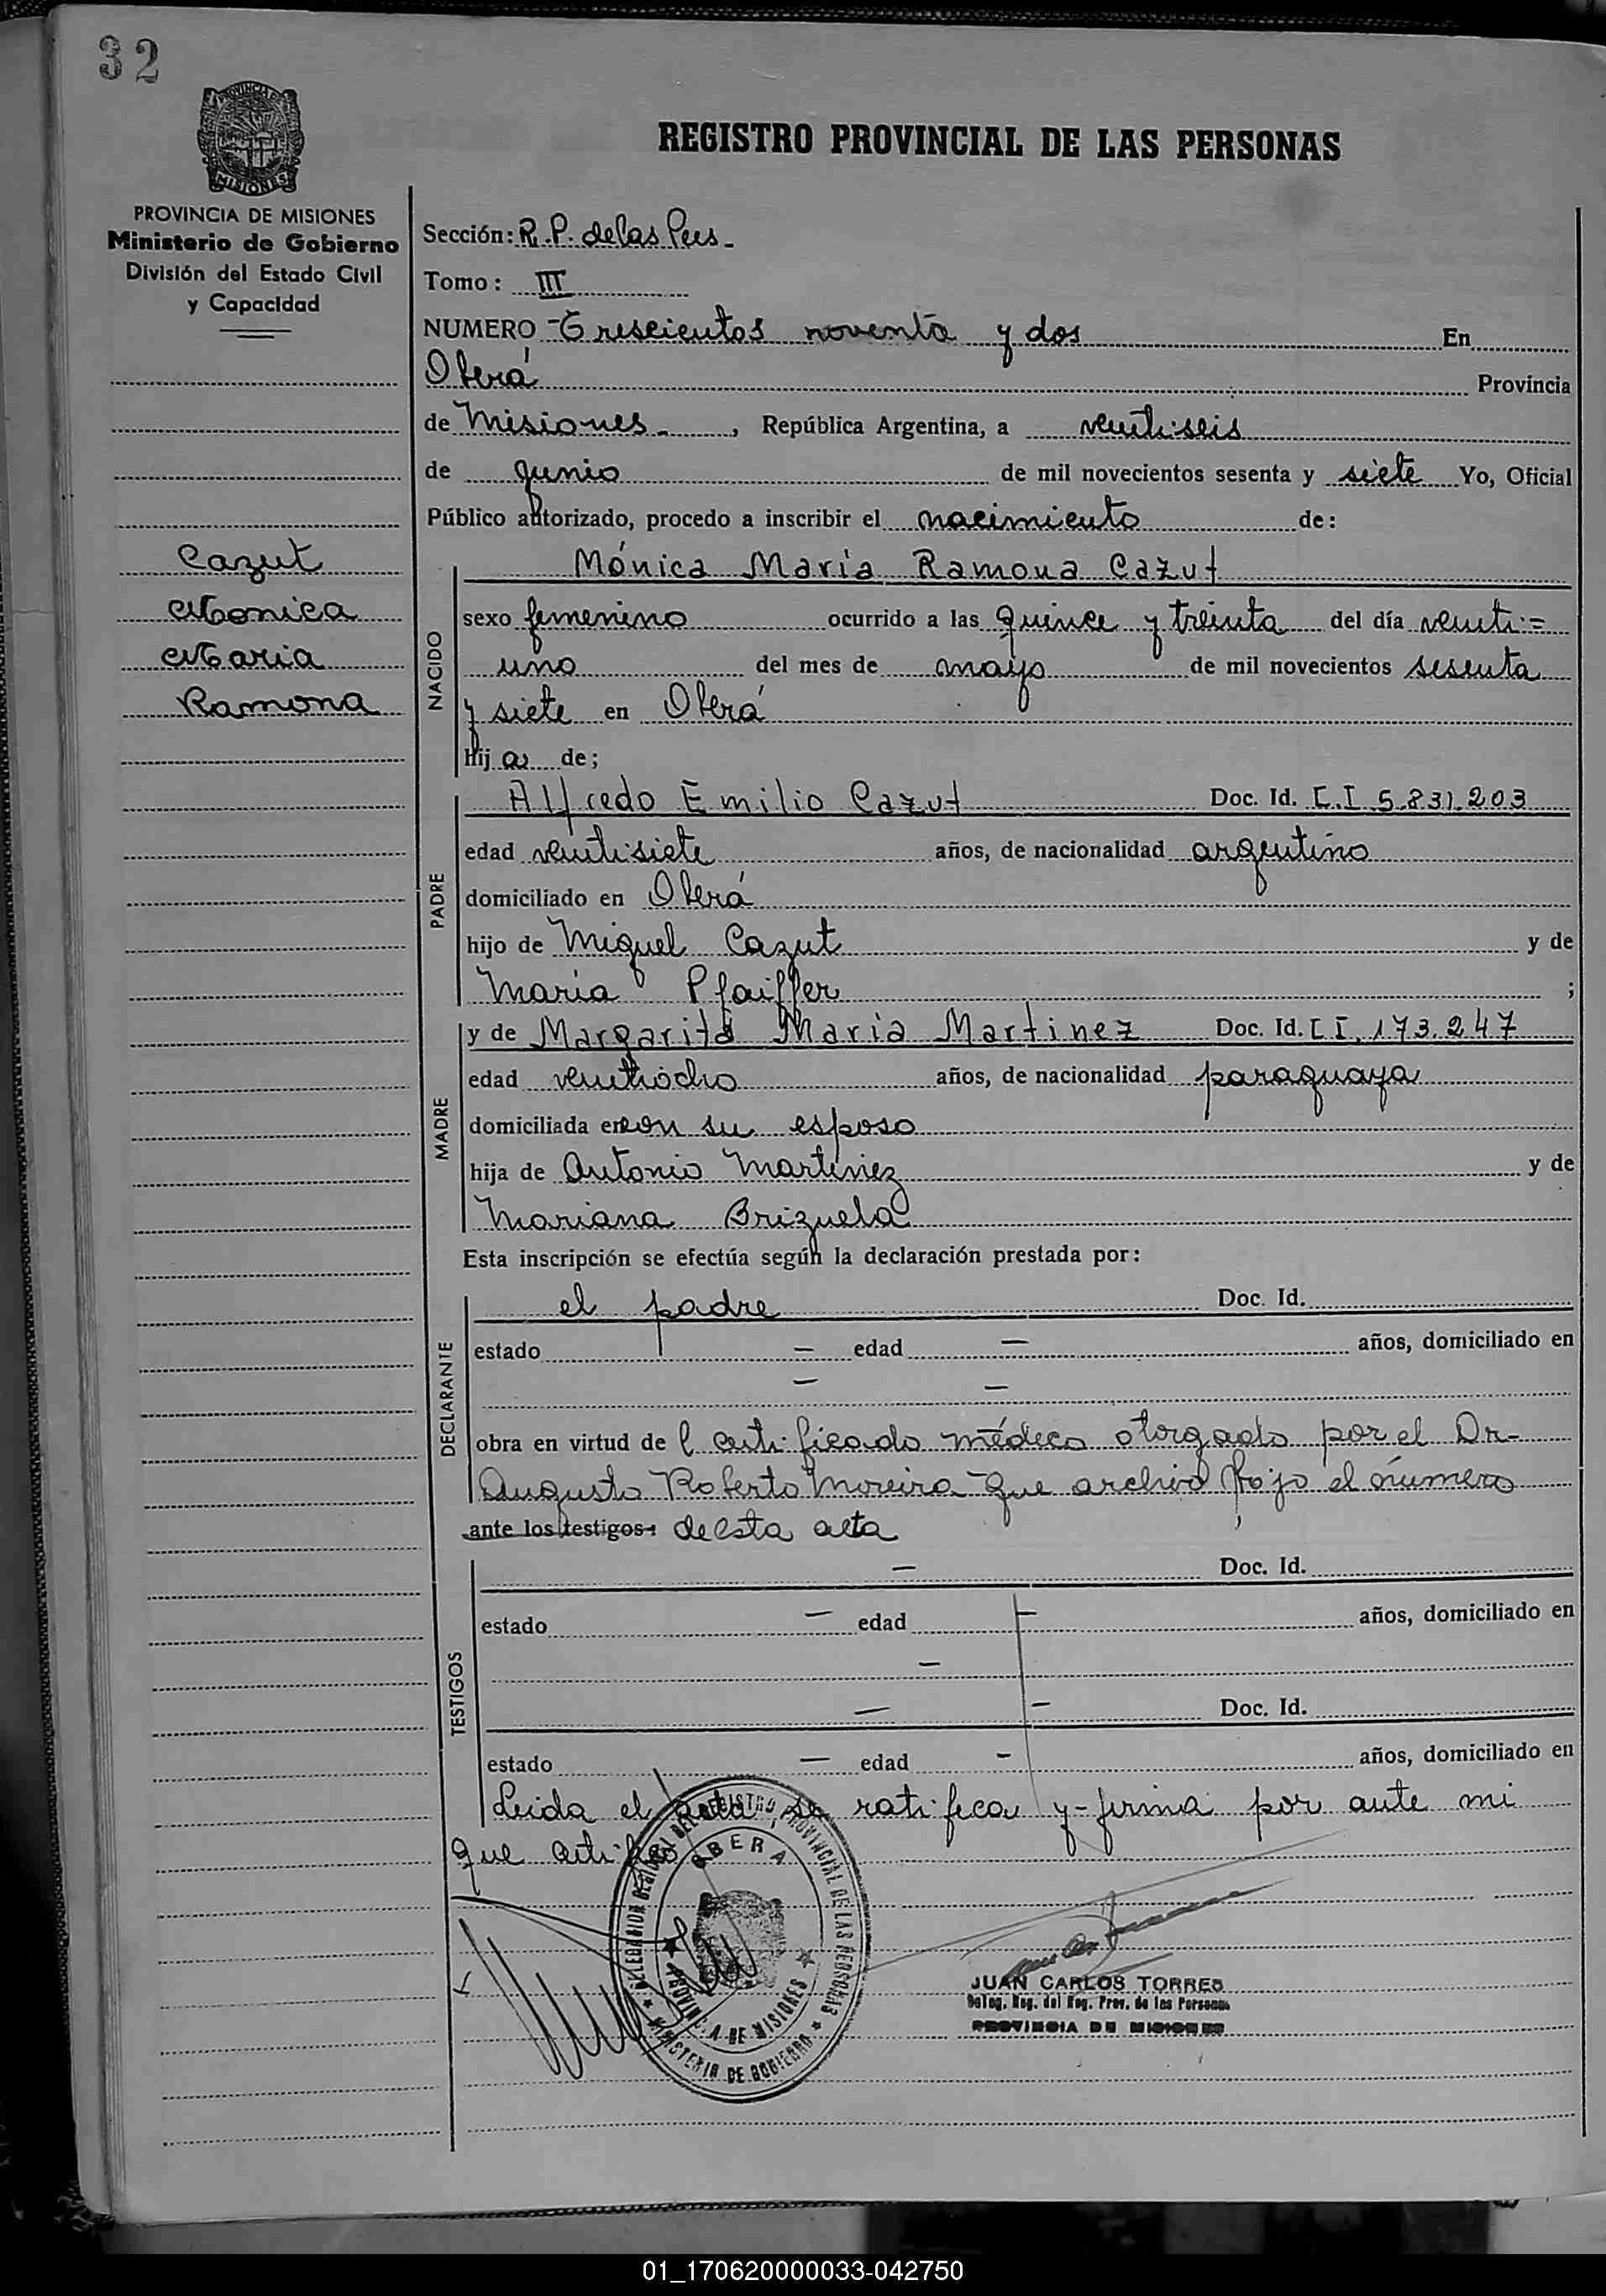 32
PROVINCIA DE MISIONES
REGISTRO PROVINCIAL DE LAS PERSONAS
PROVINCIA DE MISIONES
Ministerio de Gobierno
División del Estado Civil
y Capacidad
Cazut
Monica
Maria
Ramona
Sección: R. P. de las Pers.
Tomo: III
NUMERO Trescientos noventa y dos En
Oberá Provincia
de Misiones, República Argentina, a veintiseis
de junio de mil novecientos sesenta y siete Yo, Oficial
Público autorizado, procedo a inscribir el nacimiento de:
NACIDO
Mónica María Ramona Cazut
sexo femenino ocurrido a las quince y treinta del día veinti=
uno del mes de mayo de mil novecientos sesenta
y siete en Oberá
Hija de;
PADRE
Alfredo Emilio Cazut Doc. Id. C.I 5.831.203
edad veintisiete años, de nacionalidad argentino
domiciliado en Oberá
hijo de Miguel Cazut y de
Maria Pfaiffer ;
MADRE
y de Margarita María Martinez Doc. Id. C I. 173.247
edad veintiocho años, de nacionalidad paraguaya
domiciliada en con su esposo
hija de Antonio Martinez y de
Mariana Brizuela
Esta inscripción se efectúa según la declaración prestada por:
DECLARANTE
el padre Doc. Id.
estado — edad — años, domiciliado en
— —
obra en virtud de l certificado médico otorgado por el Dr-
Augusto Roberto Moreira que archivo bajo el número
ante los testigos: de esta acta
TESTIGOS
— Doc. Id.
estado — edad — años, domiciliado en
—
— — Doc. Id.
estado — edad — años, domiciliado en
Leida el acta, se ratifica y firma por ante mi
que certifico
DEL REGISTRO PROVINCIAL DE LAS PERSONAS
OBERA
PROVINCIA DE MISIONES
MINISTERIO DE GOBIERNO
JUAN CARLOS TORRES
Deleg. Reg. del Reg. Prov. de las Personas
PROVINCIA DE MISIONES
01_170620000033-042750